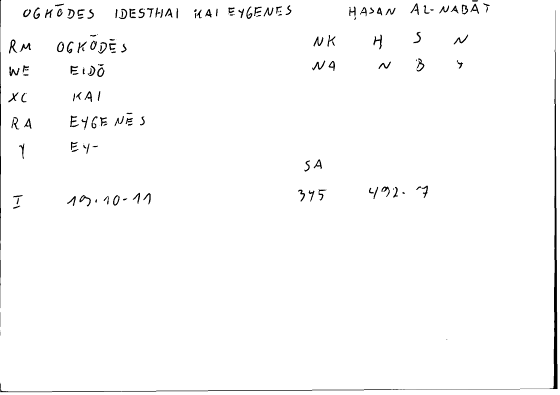 OGKŌDES IDESTHAI KAI EYGENES ḤASAN AL-NABĀT
RM OGKŌDĒS NK Ḥ S N
WE EIDŌ NA N B Y
XC KAI
RA EYGENĒS
Y EY-
SA
I 19.10-11 345 492.7